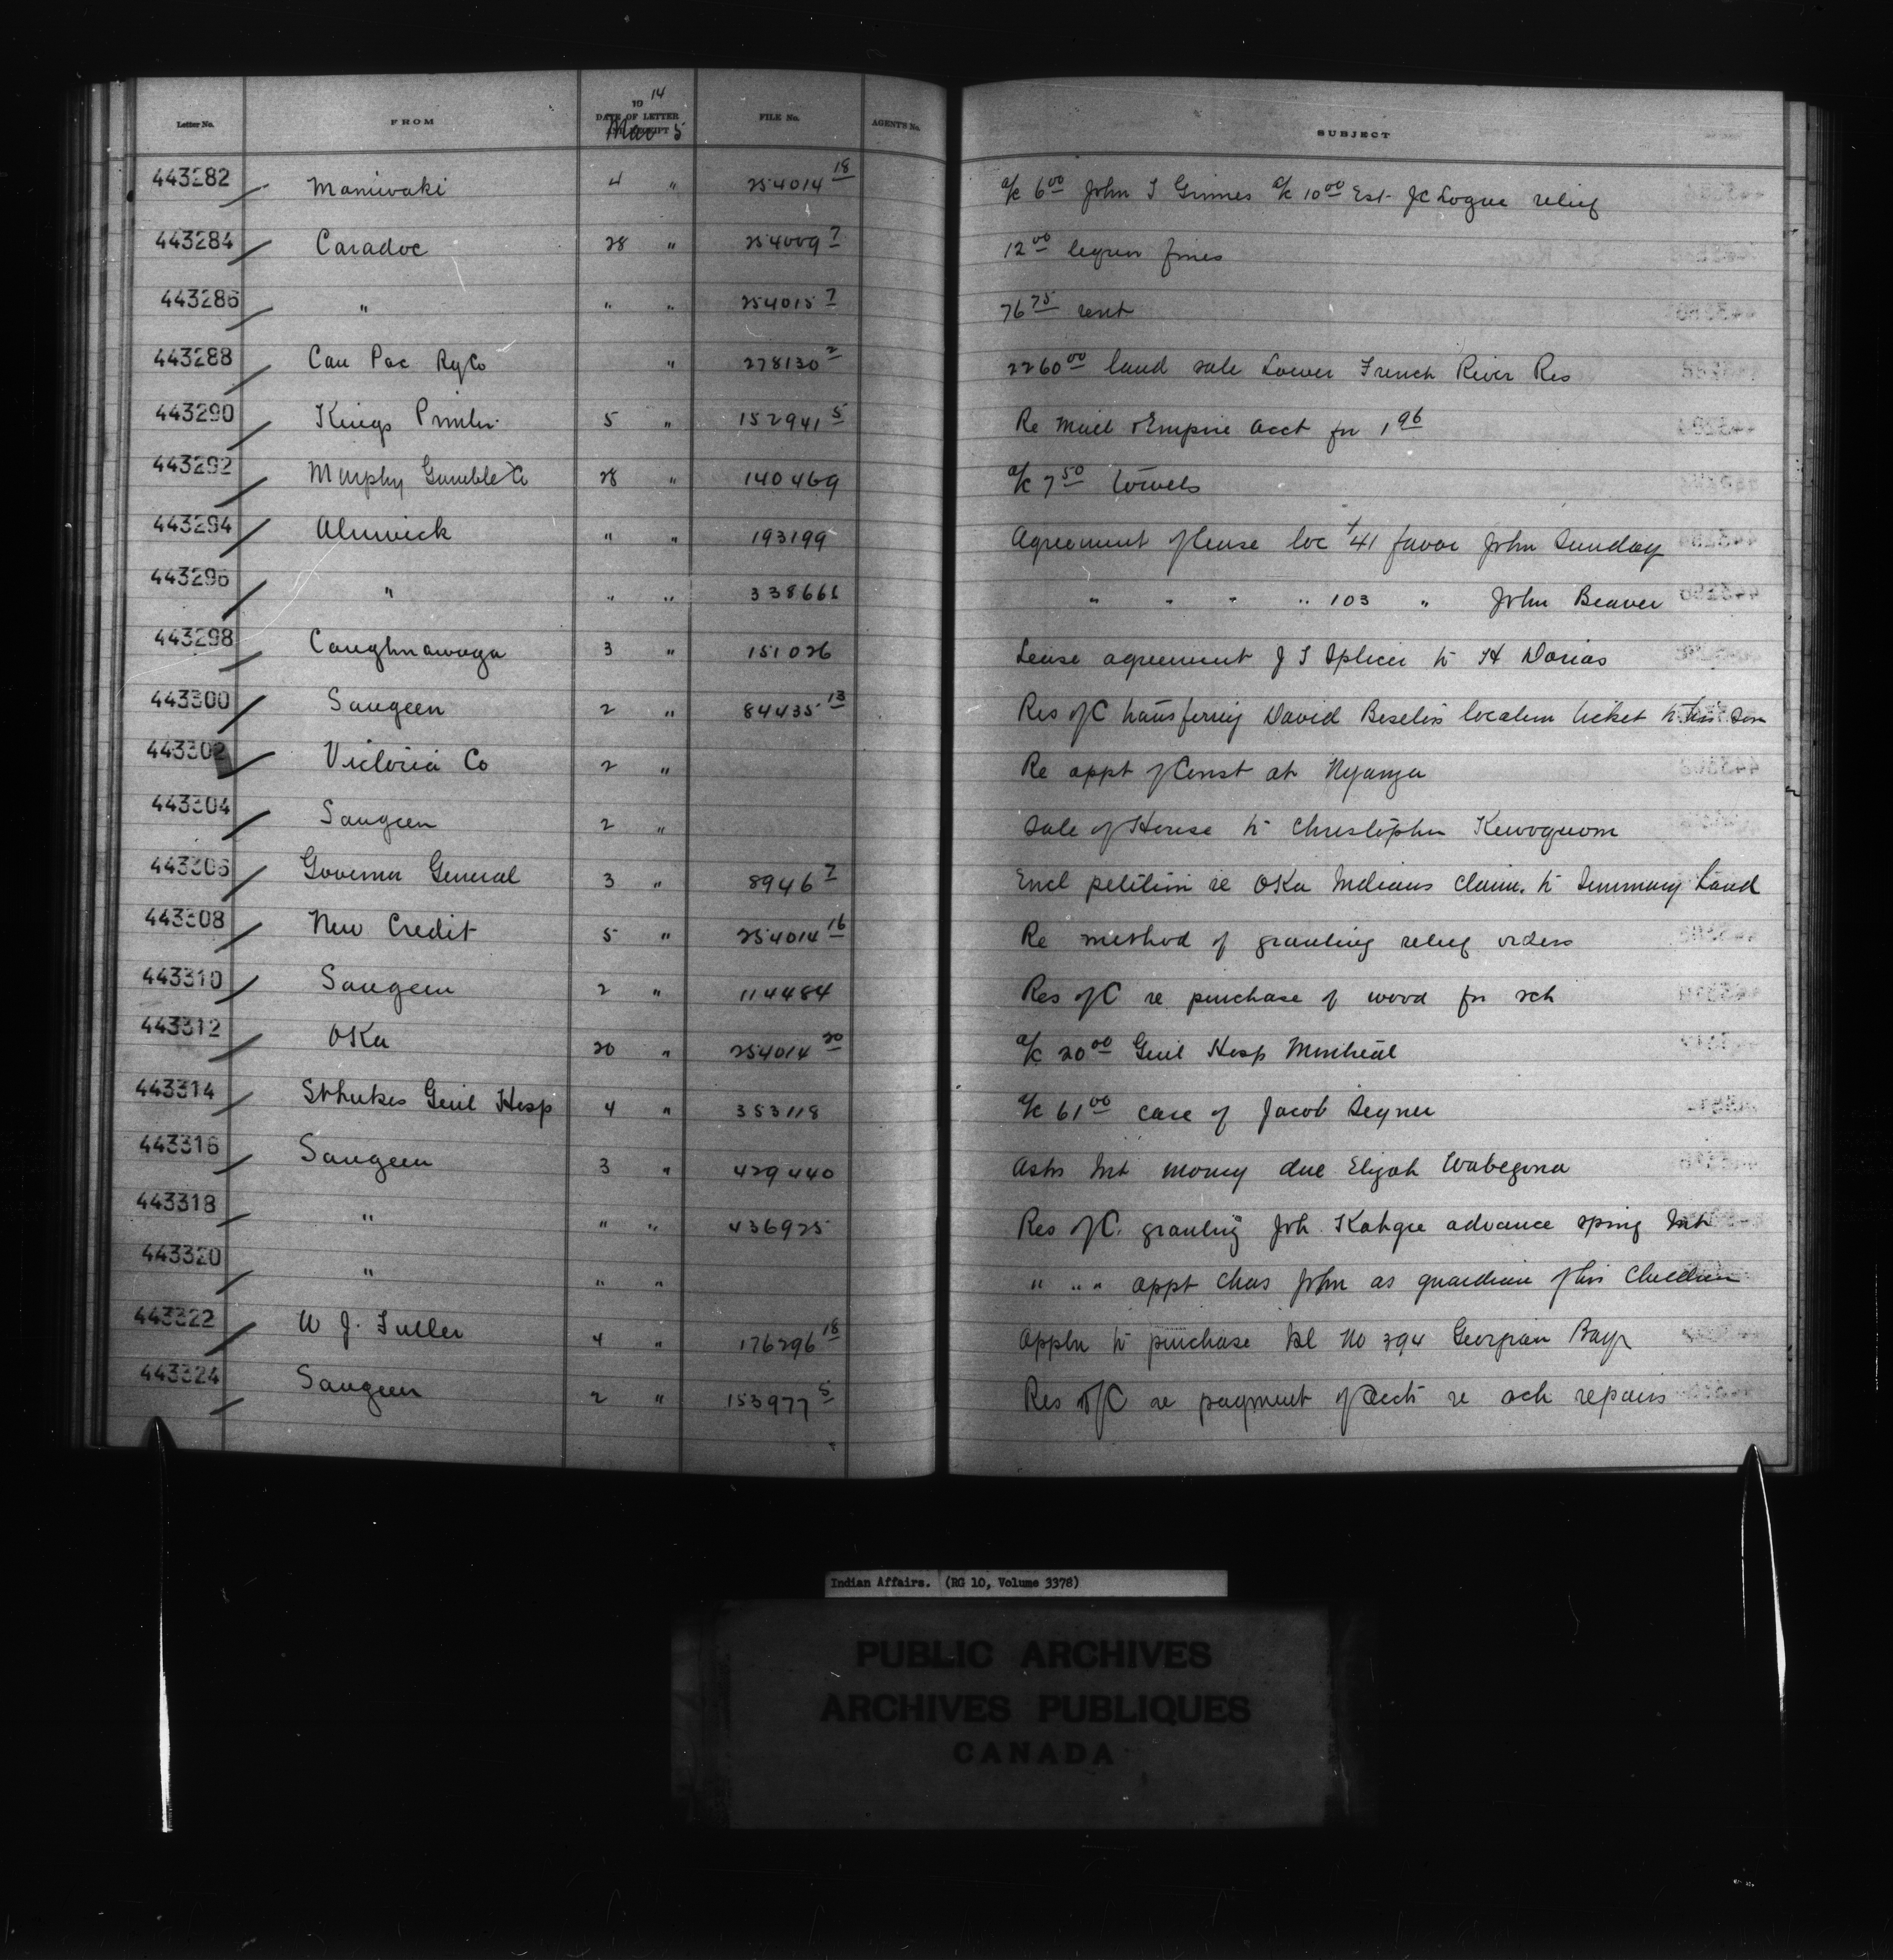 Letter No. FROM 19 14 DATE OF LETTER RECEIPT Mar 5 FILE No. AGENT'S No. SUBJECT
443282 Maniwaki 4 " 254014 18 a/c 6 00 John T Grimes a/c 10 00 Est. JC Logue relief
443284 Caradoc 28 " 254009 7 12 00 liquor fines
443286 " " " 254015 7 76 75 rent
443288 Can Pac Ry Co " 278130 2 2260 00 land sale Lower French River Res
443290 Kings Printer 5 " 152941 5 Re Mail & Empire acct for 1 96
443292 Murphy Gamble Co 28 " 140469 a/c 7 50 towels
443294 Alnwick " " 193199 Agreement of lease loc 41 favor John Sunday
443296 " " " 338666 " " " " 103 " John Beaver
443298 Caughnawaga 3 " 151026 Lease agreement J T Splicer to H
443300 Saugeen 2 " 84435 13 Res of C transferring David location ticket to his son
443302 Victoria Co 2 " Re appt of Const at Nyanza
443304 Saugeen 2 " Sale of House to Christopher
443306 Governor General 3 " 8946 7 Encl petition re Oka Indians claim to Seminary Land
443308 New Credit 5 " 254014 16 Re method of granting relief orders
443310 Saugeen 2 " 114484 Res of C re purchase of wood for sch
443312 Oka 20 " 254014 20 a/c 20 00 Genl Hosp Montreal
443314 St Lukes Genl Hosp 4 " 353118 a/c 61 00 care of Jacob
443316 Saugeen 3 " 429440 Asks Int money due Elijah Wabegona
443318 " " " 436925 Res of C. granting Joh. Kahgee advance spring Int
443320 " " " " " " appt Chas John as guardian of his children
443322 W J. Fuller 4 " 176296 18 Appln to purchase Isl No 294 Georgian Bay
443324 Saugeen 2 " 153977 5 Res of C re payment of accts re sch repairs
Indian Affairs. (RG 10, Volume 3378)
PUBLIC ARCHIVES
ARCHIVES PUBLIQUES
CANADA